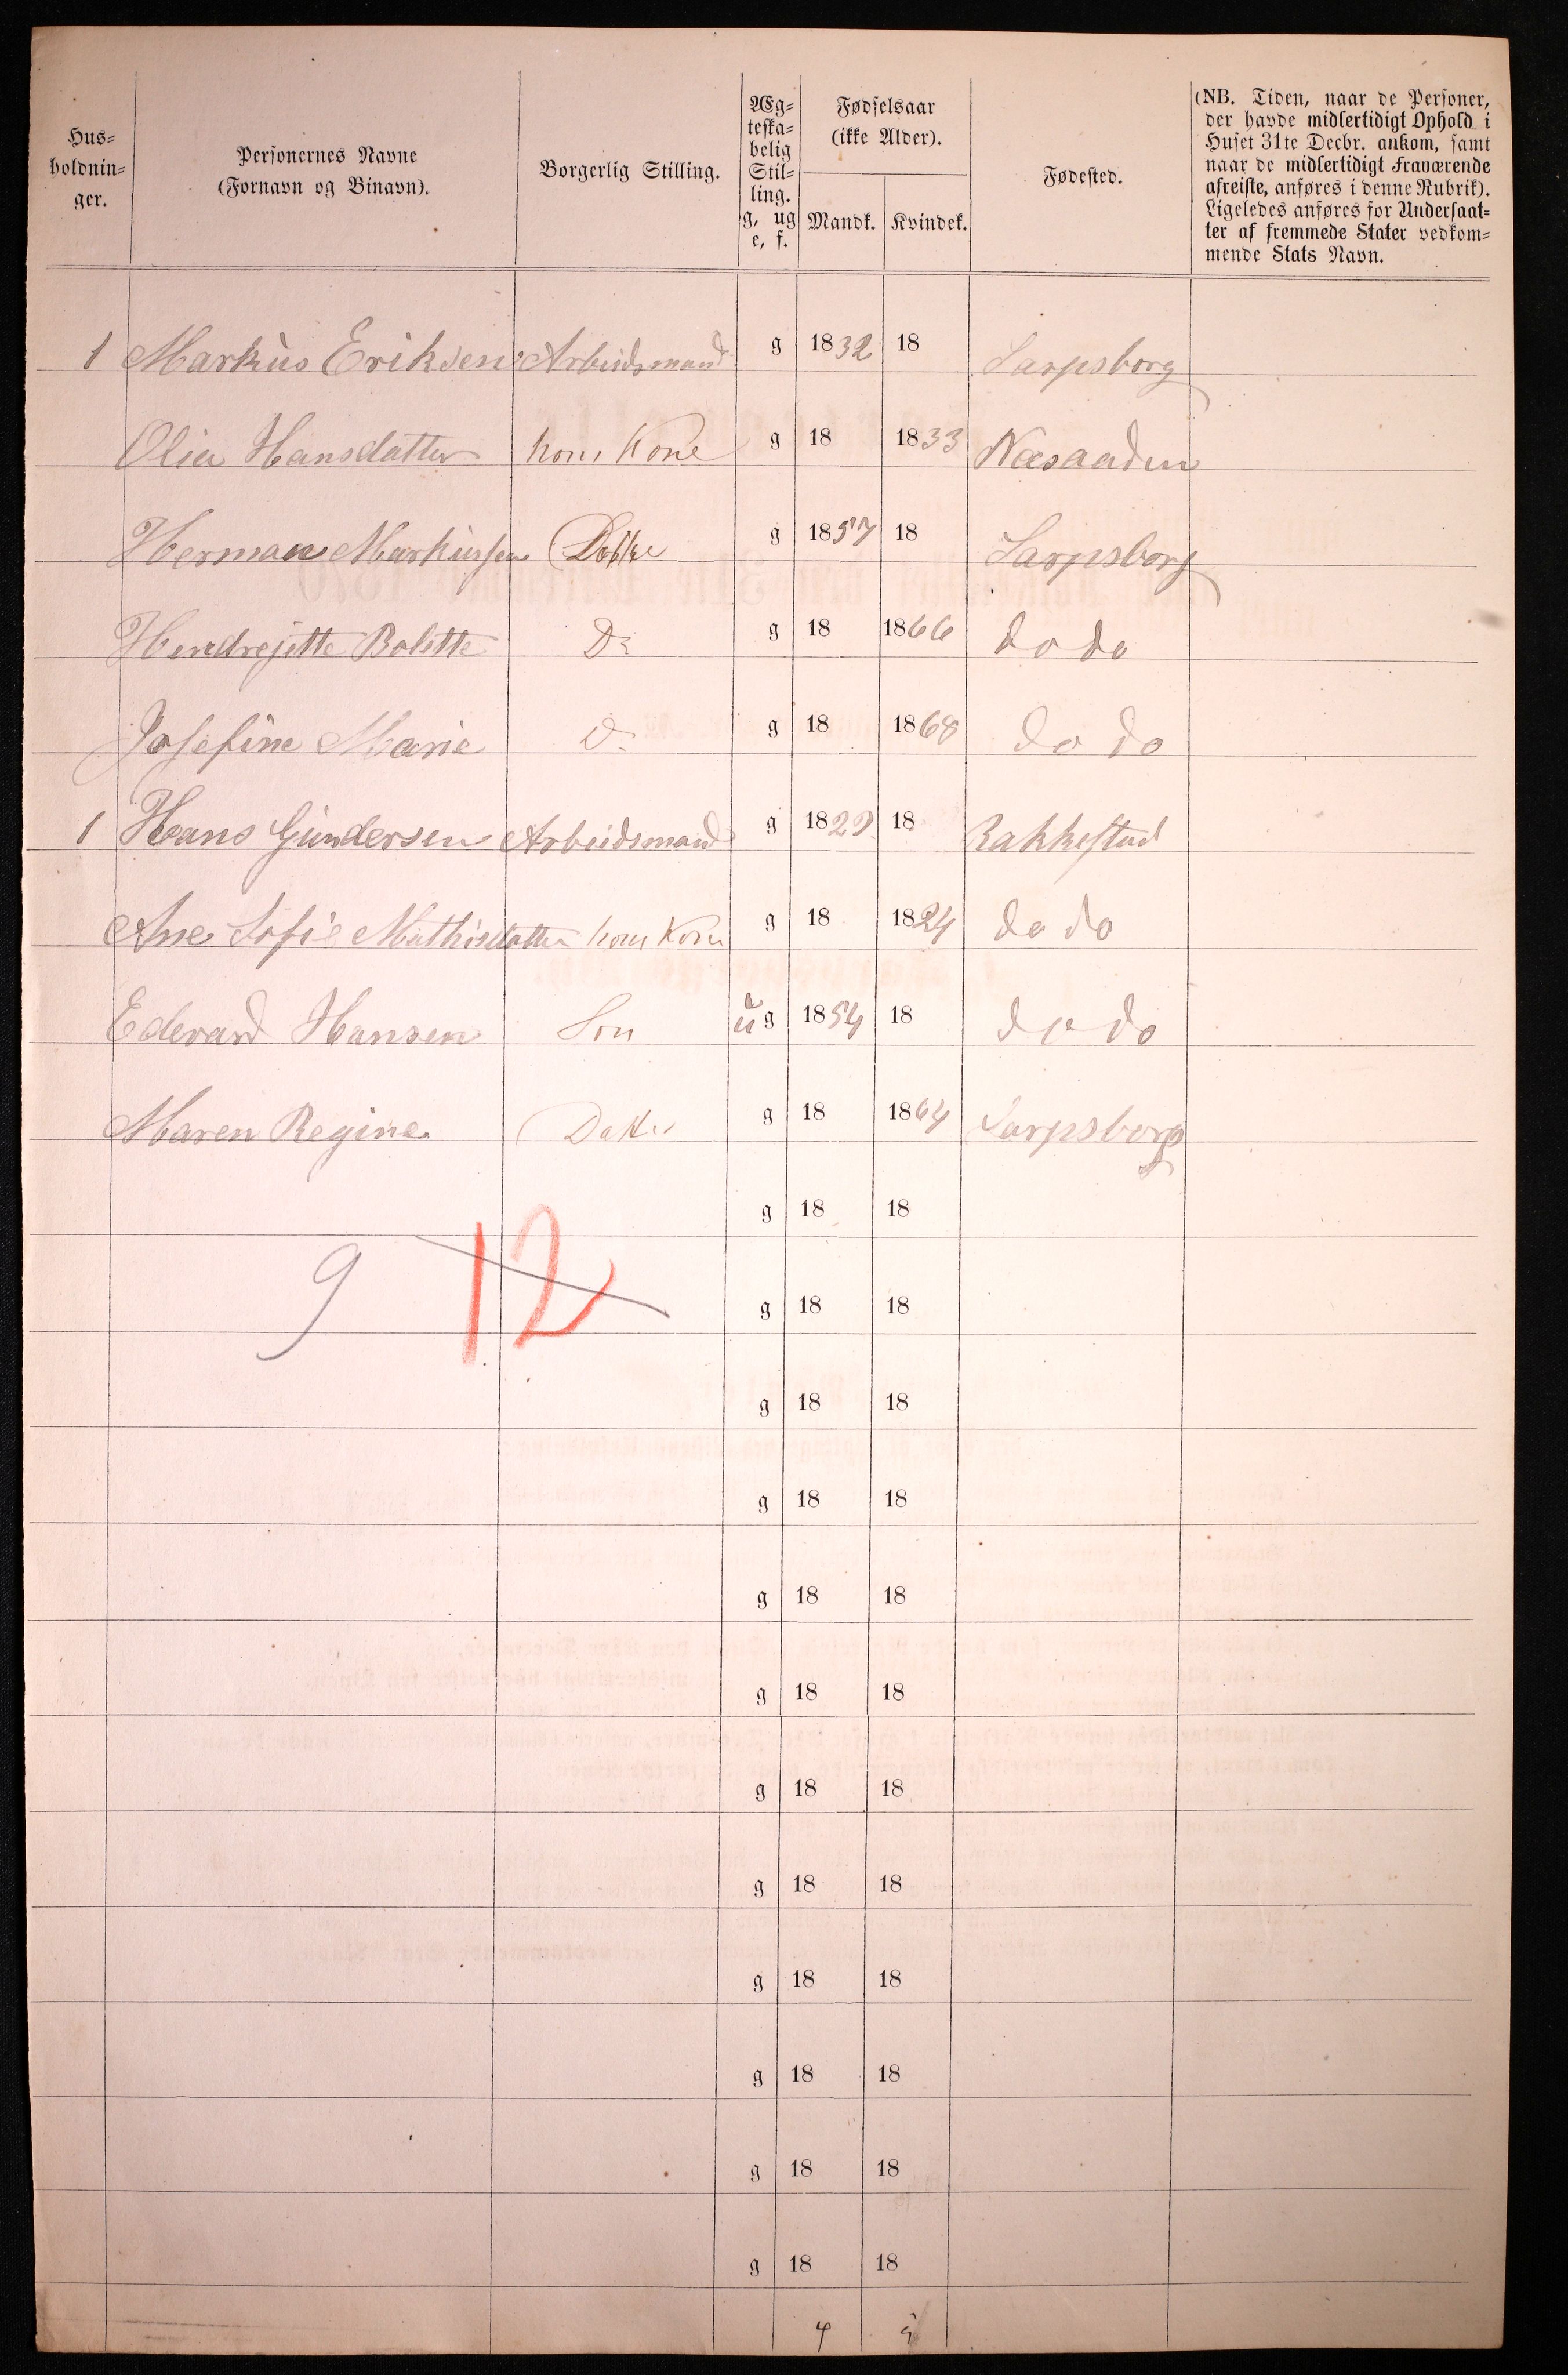 Hus-
holdnin-
ger.
Personernes Navne
(Fornavn og Binavn).
Borgerlig Stilling.
Æg-
teska-
belig
Stil-
ling.
g, ug
e, f.
Fødselsaar
(ikke Alder).
Mandk. Kvindek.
Fødested.
(NB. Tiden, naar de Personer,
der havde midlertidigt Ophold i
Huset 31te Decbr. ankom, samt
naar de midlertidigt Fraværende
afreiste, anføres i denne Rubrik).
Ligeledes anføres for Undersaat-
ter af fremmede Stater vedkom-
mende Stats Navn.
1 Markus Eriksen Arbeidsmand g 1832 18 Sarpsborg
Olia Hansdatter hans Kone g 18 1833 Næsaaden
Herman Markussen g 1857 18 Sarpsborg
Hendrejette Bolette Do g 18 1866 do do
Josefine Marie D. g 18 1868 do do
1 Hans Gundersen Arbeidsmand g 1829 18 Rakkestad
Ane Sofie Mathisdatter hans Kone g 18 1824 do do
Edevard Hansen Son ug 1854 18 do do
Maren Regine Datter g 18 1864 Sarpsborg
g 18 18
9 12
g 18 18
g 18 18
g 18 18
g 18 18
g 18 18
g 18 18
g 18 18
g 18 18
g 18 18
g 18 18
g 18 18
4 5